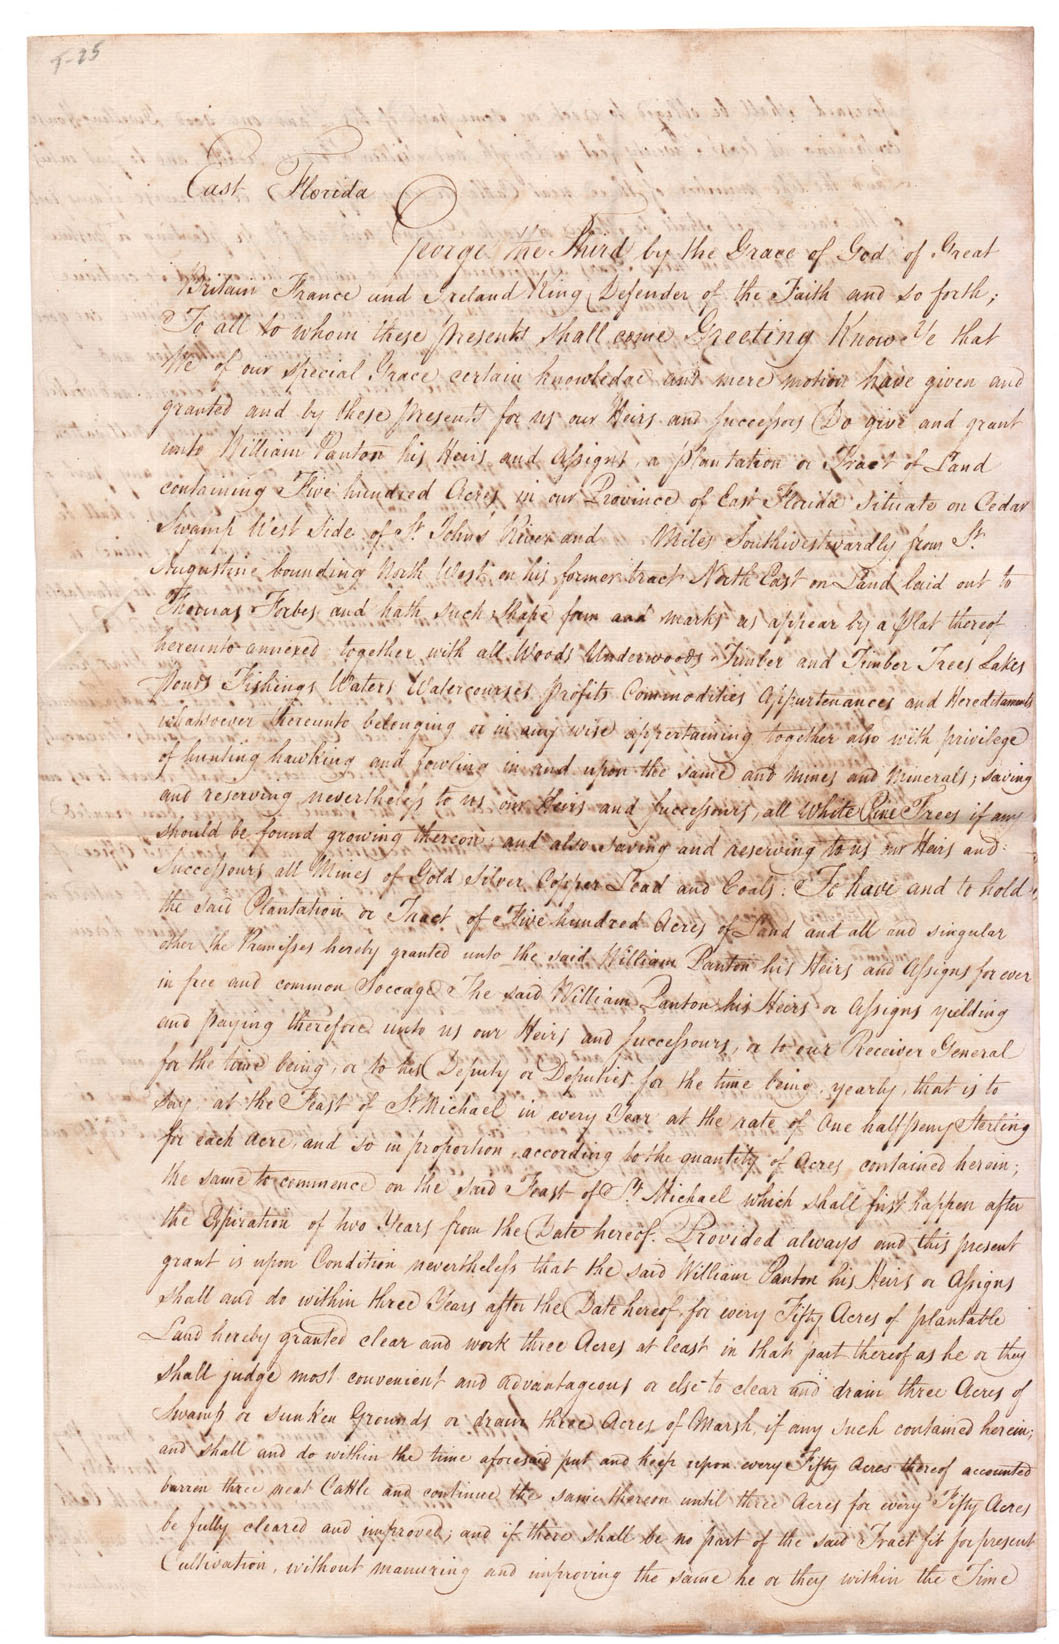 5-25
East Florida
George the Third by the Grace of God of Great
Britain France and Ireland King Defender of the Faith and so forth;
To all to whom these presents shall come Greeting Know Ye that
We of our special Grace certain knowledge and mere motion have given and
granted and by these presents for us our Heirs and Successors Do give and grant
unto William Panton his Heirs and Assigns, a plantation or Tract of Land
containing Five hundred Acres in our Province of East Florida situate on Cedar
Swamp West Side of St. John's River and Miles Southwestwardly from St.
Augustine bounding North West on his former tract North East on Land laid out to
Thomas Forbes, and hath such shape form and marks as appear by a Plat thereof
hereunto annexed together with all Woods Underwoods Timber and Timber Trees Lakes
Ponds Fishings Waters Watercourses profits Commodities Appurtenances and Hereditaments
whatsoever thereunto belonging or in any wise appertaining together also with privilege
of hunting hawking and fowling in and upon the same and mines and minerals; saving
and reserving nevertheless to us our Heirs and Successours, all White Pine Trees if any
should be found growing thereon; and also saving and reserving to us our Heirs and
Successours all Mines of Gold Silver Copper Lead and Coals. To have and to hold
the said Plantation or Tract of Five hundred Acres of Land and all and singular
other the Premisses hereby granted unto the said William Panton his Heirs and Assigns for ever
in free and common Soccage The said William Panton his Heirs or Assigns yielding
and paying therefore unto us our Heirs and Successours, or to our Receiver General
for the time being, or to his Deputy or Deputies for the time being, yearly, that is to
say, at the Feast of St. Michael in every Year at the rate of One halfpenny Sterling
for each Acre, and so in proportion, according to the quantity of Acres contained herein;
the same to commence on the said Feast of St. Michael which shall first happen after
the Expiration of two Years from the Date hereof. Provided always and this present
grant is upon Condition nevertheless that the said William Panton his Heirs or Assigns
shall and do within three Years after the Date hereof, for every Fifty Acres of plantable
Land hereby granted clear and work three Acres at least in that part thereof as he or they
shall judge most convenient and advantageous or else to clear and drain three Acres of
Swamp or sunken Grounds or drain three Acres of Marsh, if any such contained herein;
and shall and do within the time aforesaid put and keep upon every Fifty Acres thereof accounted
barren three neat Cattle and continue the same thereon until three Acres for every Fifty Acres
be fully cleared and improved; and if there shall be no part of the said Tract fit for present
Cultivation, without manuring and improving the same he or they within the Time